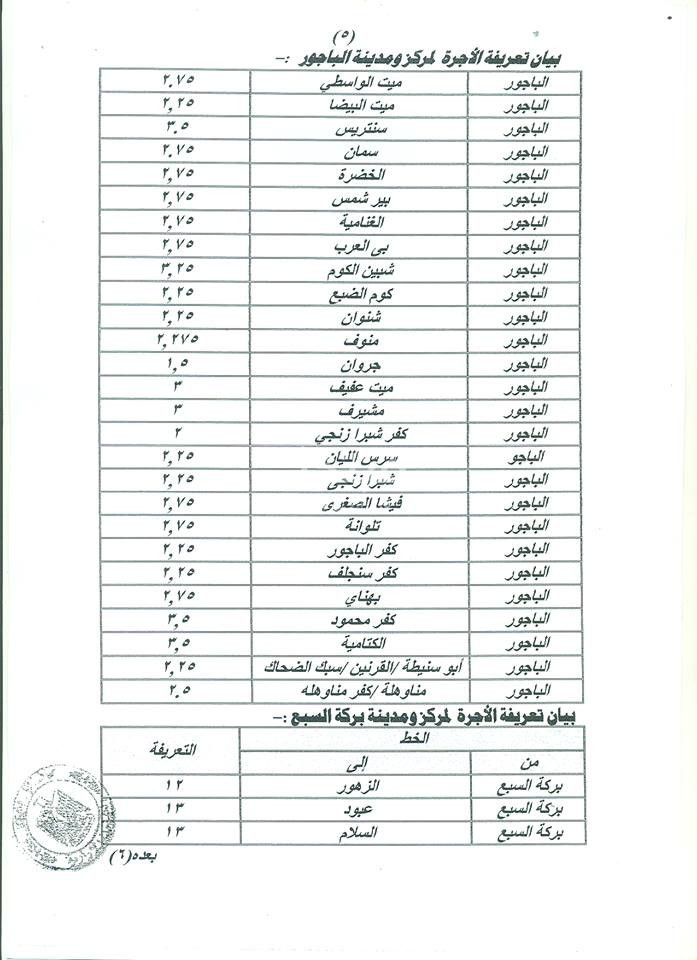 (٥)
بيان تعريفة الأجرة لمركز ومدينة الباجور :-
الباجور ميت الواسطي ٢.٧٥
الباجور ميت البيضا ٢,٢٥
الباجور سنتريس ٣.٥
الباجور سمان ٢.٧٥
الباجور الخضرة ٢,٧٥
الباجور بير شمس ٢,٧٥
الباجور الغنامية ٢,٧٥
الباجور بى العرب ٢,٧٥
الباجور شبين الكوم ٣,٢٥
الباجور كوم الضبع ٢,٢٥
الباجور شنوان ٢,٢٥
الباجور منوف ٢,٢٧٥
الباجور جروان ١,٥
الباجور ميت عفيف ٣
الباجور مشيرف ٣
الباجور كفر شبرا زنجي ٢
الباجو سرس الليان ٢,٢٥
الباجور شبرا زنجى ٢,٢٥
الباجور فيشا الصغرى ٢,٧٥
الباجور تلوانة ٢,٧٥
الباجور كفر الباجور ٢,٢٥
الباجور كفر سنجلف ٢,٢٥
الباجور بهناي ٢,٧٥
الباجور كفر محمود ٣,٥
الباجور الكتامية ٣,٥
الباجور أبو سنيطة /القرنين /سبك الضحاك ٢,٢٥
الباجور مناوهلة /كفر مناوهله ٢.٥
بيان تعريفة الأجرة لمركز ومدينة بركة السبع :-
الخط التعريفة
من إلى
بركة السبع الزهور ١٢
بركة السبع عبود ١٣
بركة السبع السلام ١٣
بعده(٦)